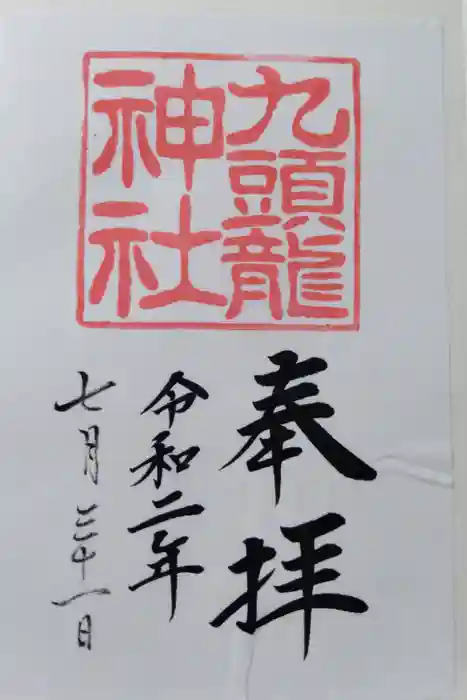 九頭龍
神社
奉拝
令和二年
七月三十一日